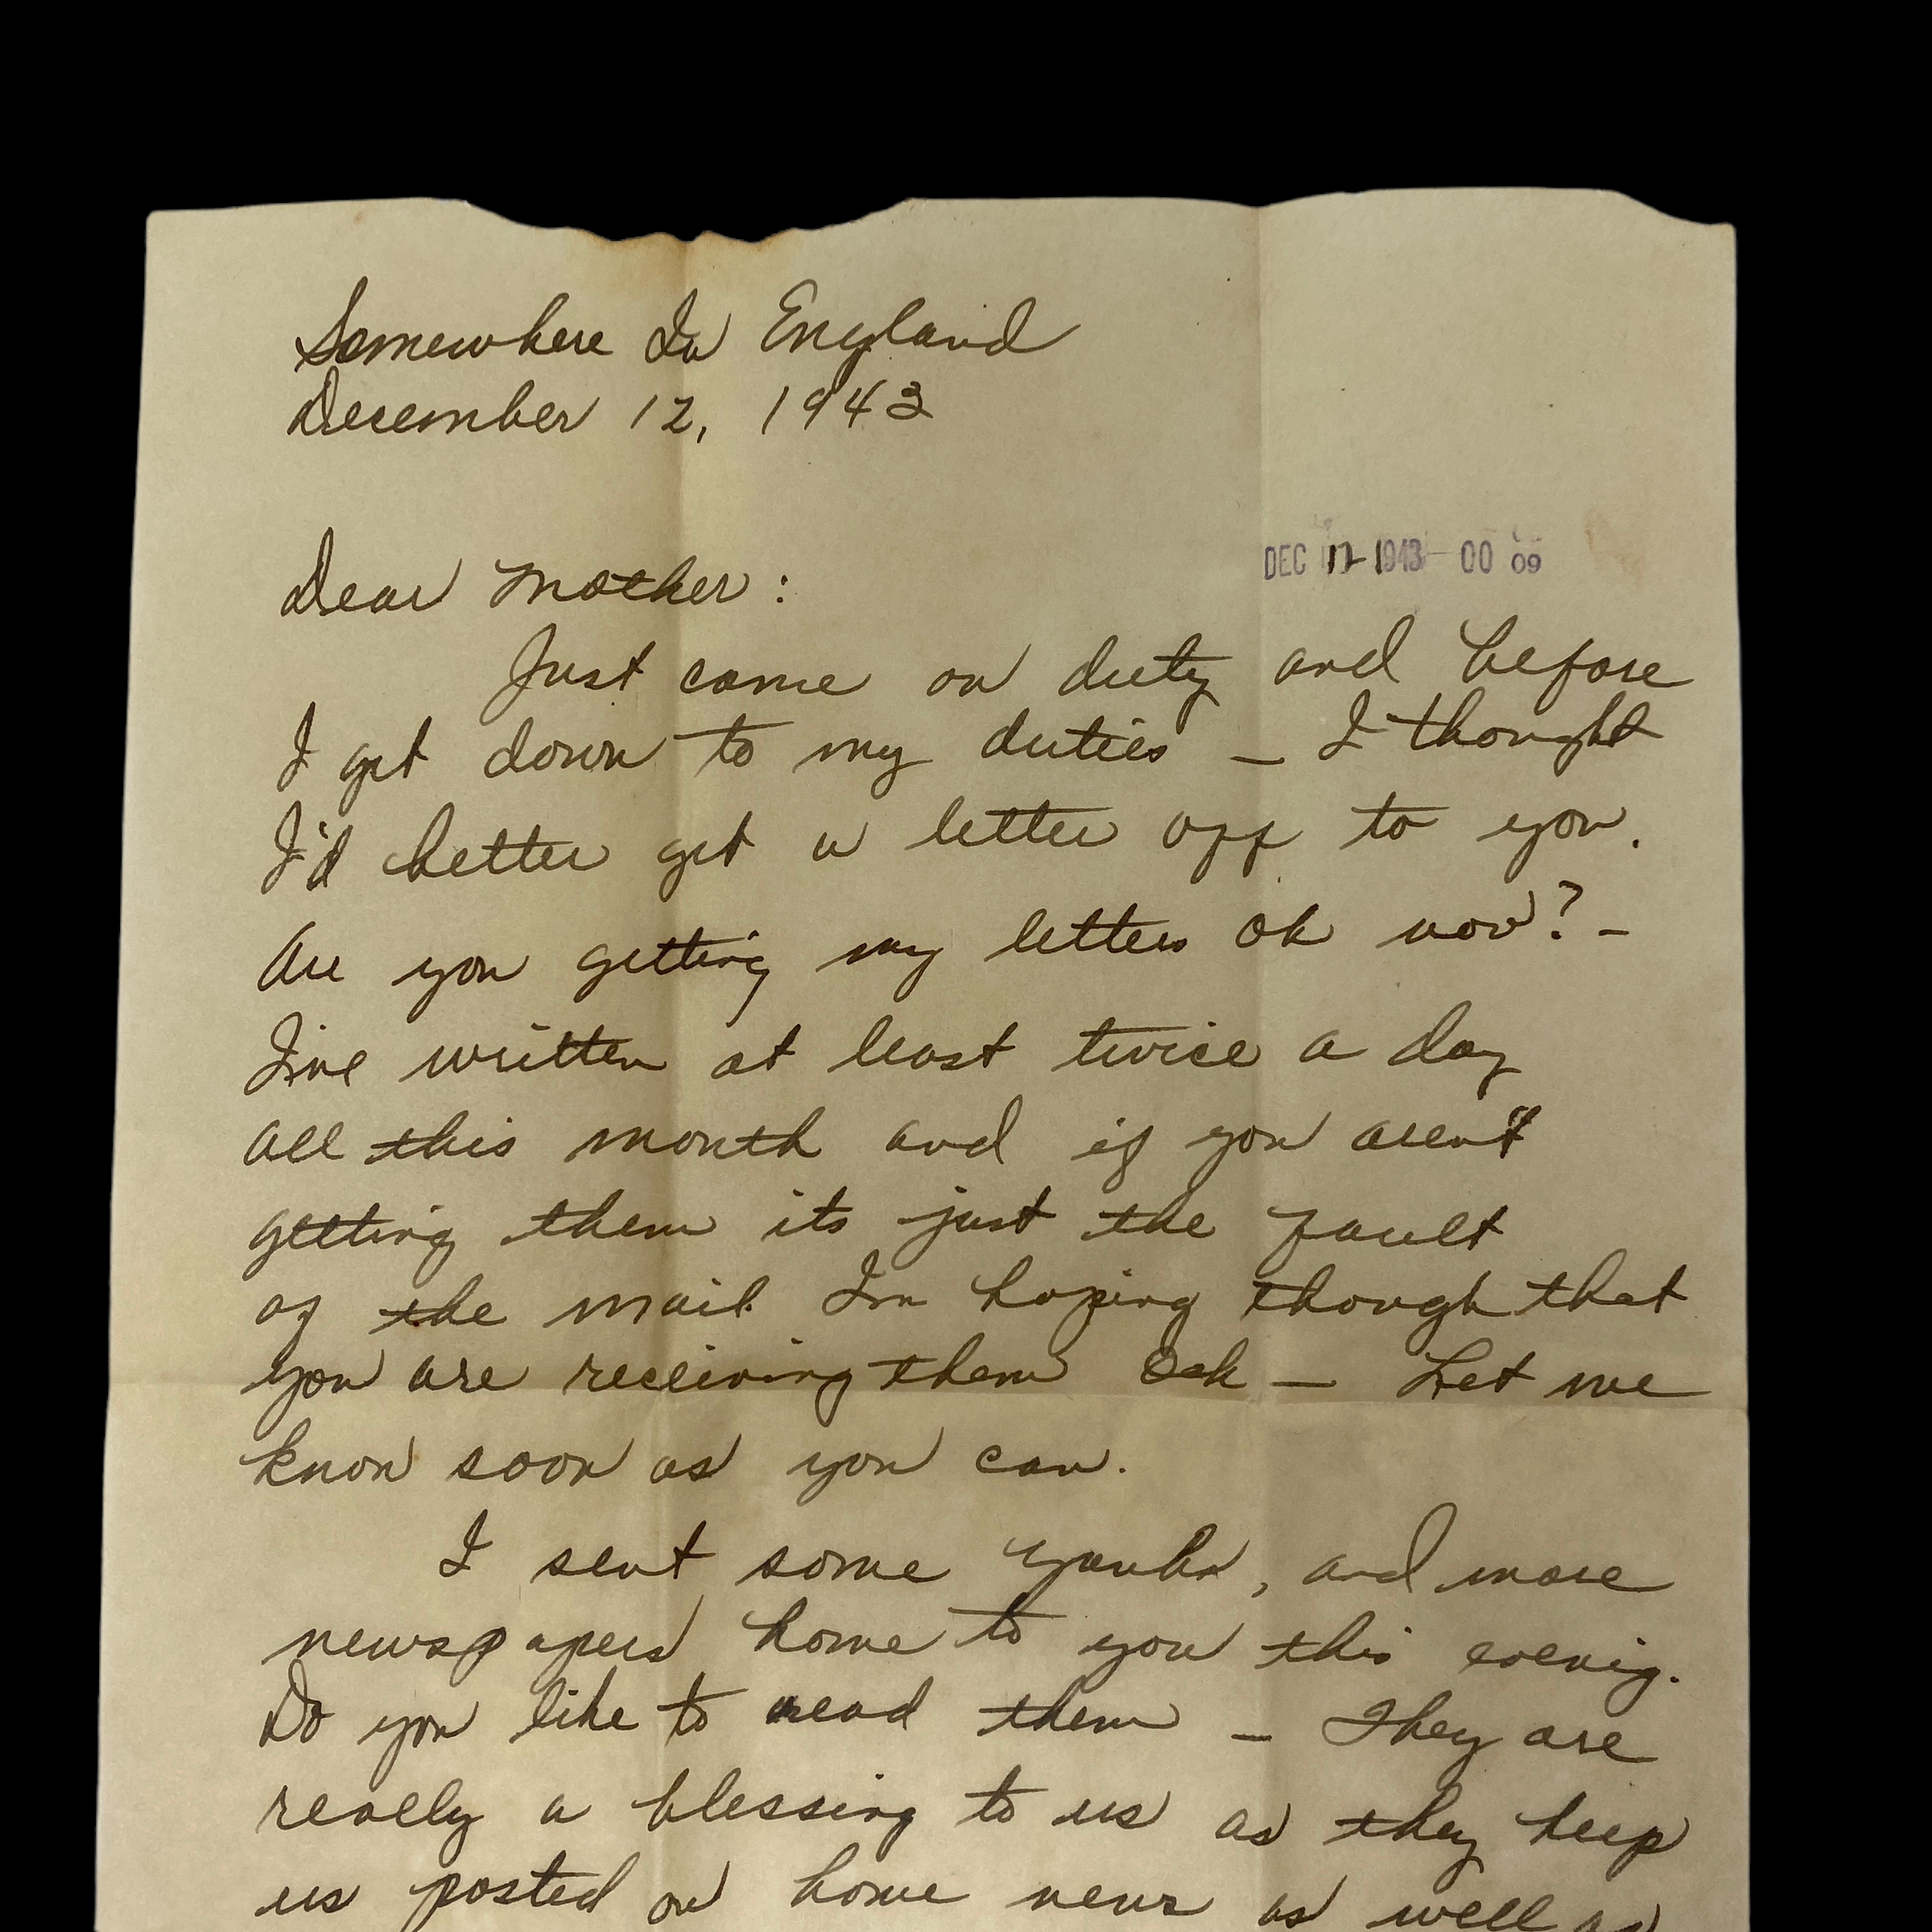 Somewhere In England
December 12, 1943
DEC 1943 00 09
Dear Mother:
Just came on duty and before
I get down to my duties — I thought
I'd better get a letter off to you.
Are you getting my letters Ok now? —
I've written at least twice a day
all this month and if you arent
getting them its just the fault
of the mail. Im hoping though that
you are receiving them Ook — Let me
know soon as you can.
I sent some Yanks, and more
newspapers home to you this evenig.
Do you like to read them — They are
really a blessing to us as they keep
us posted on home news as well as